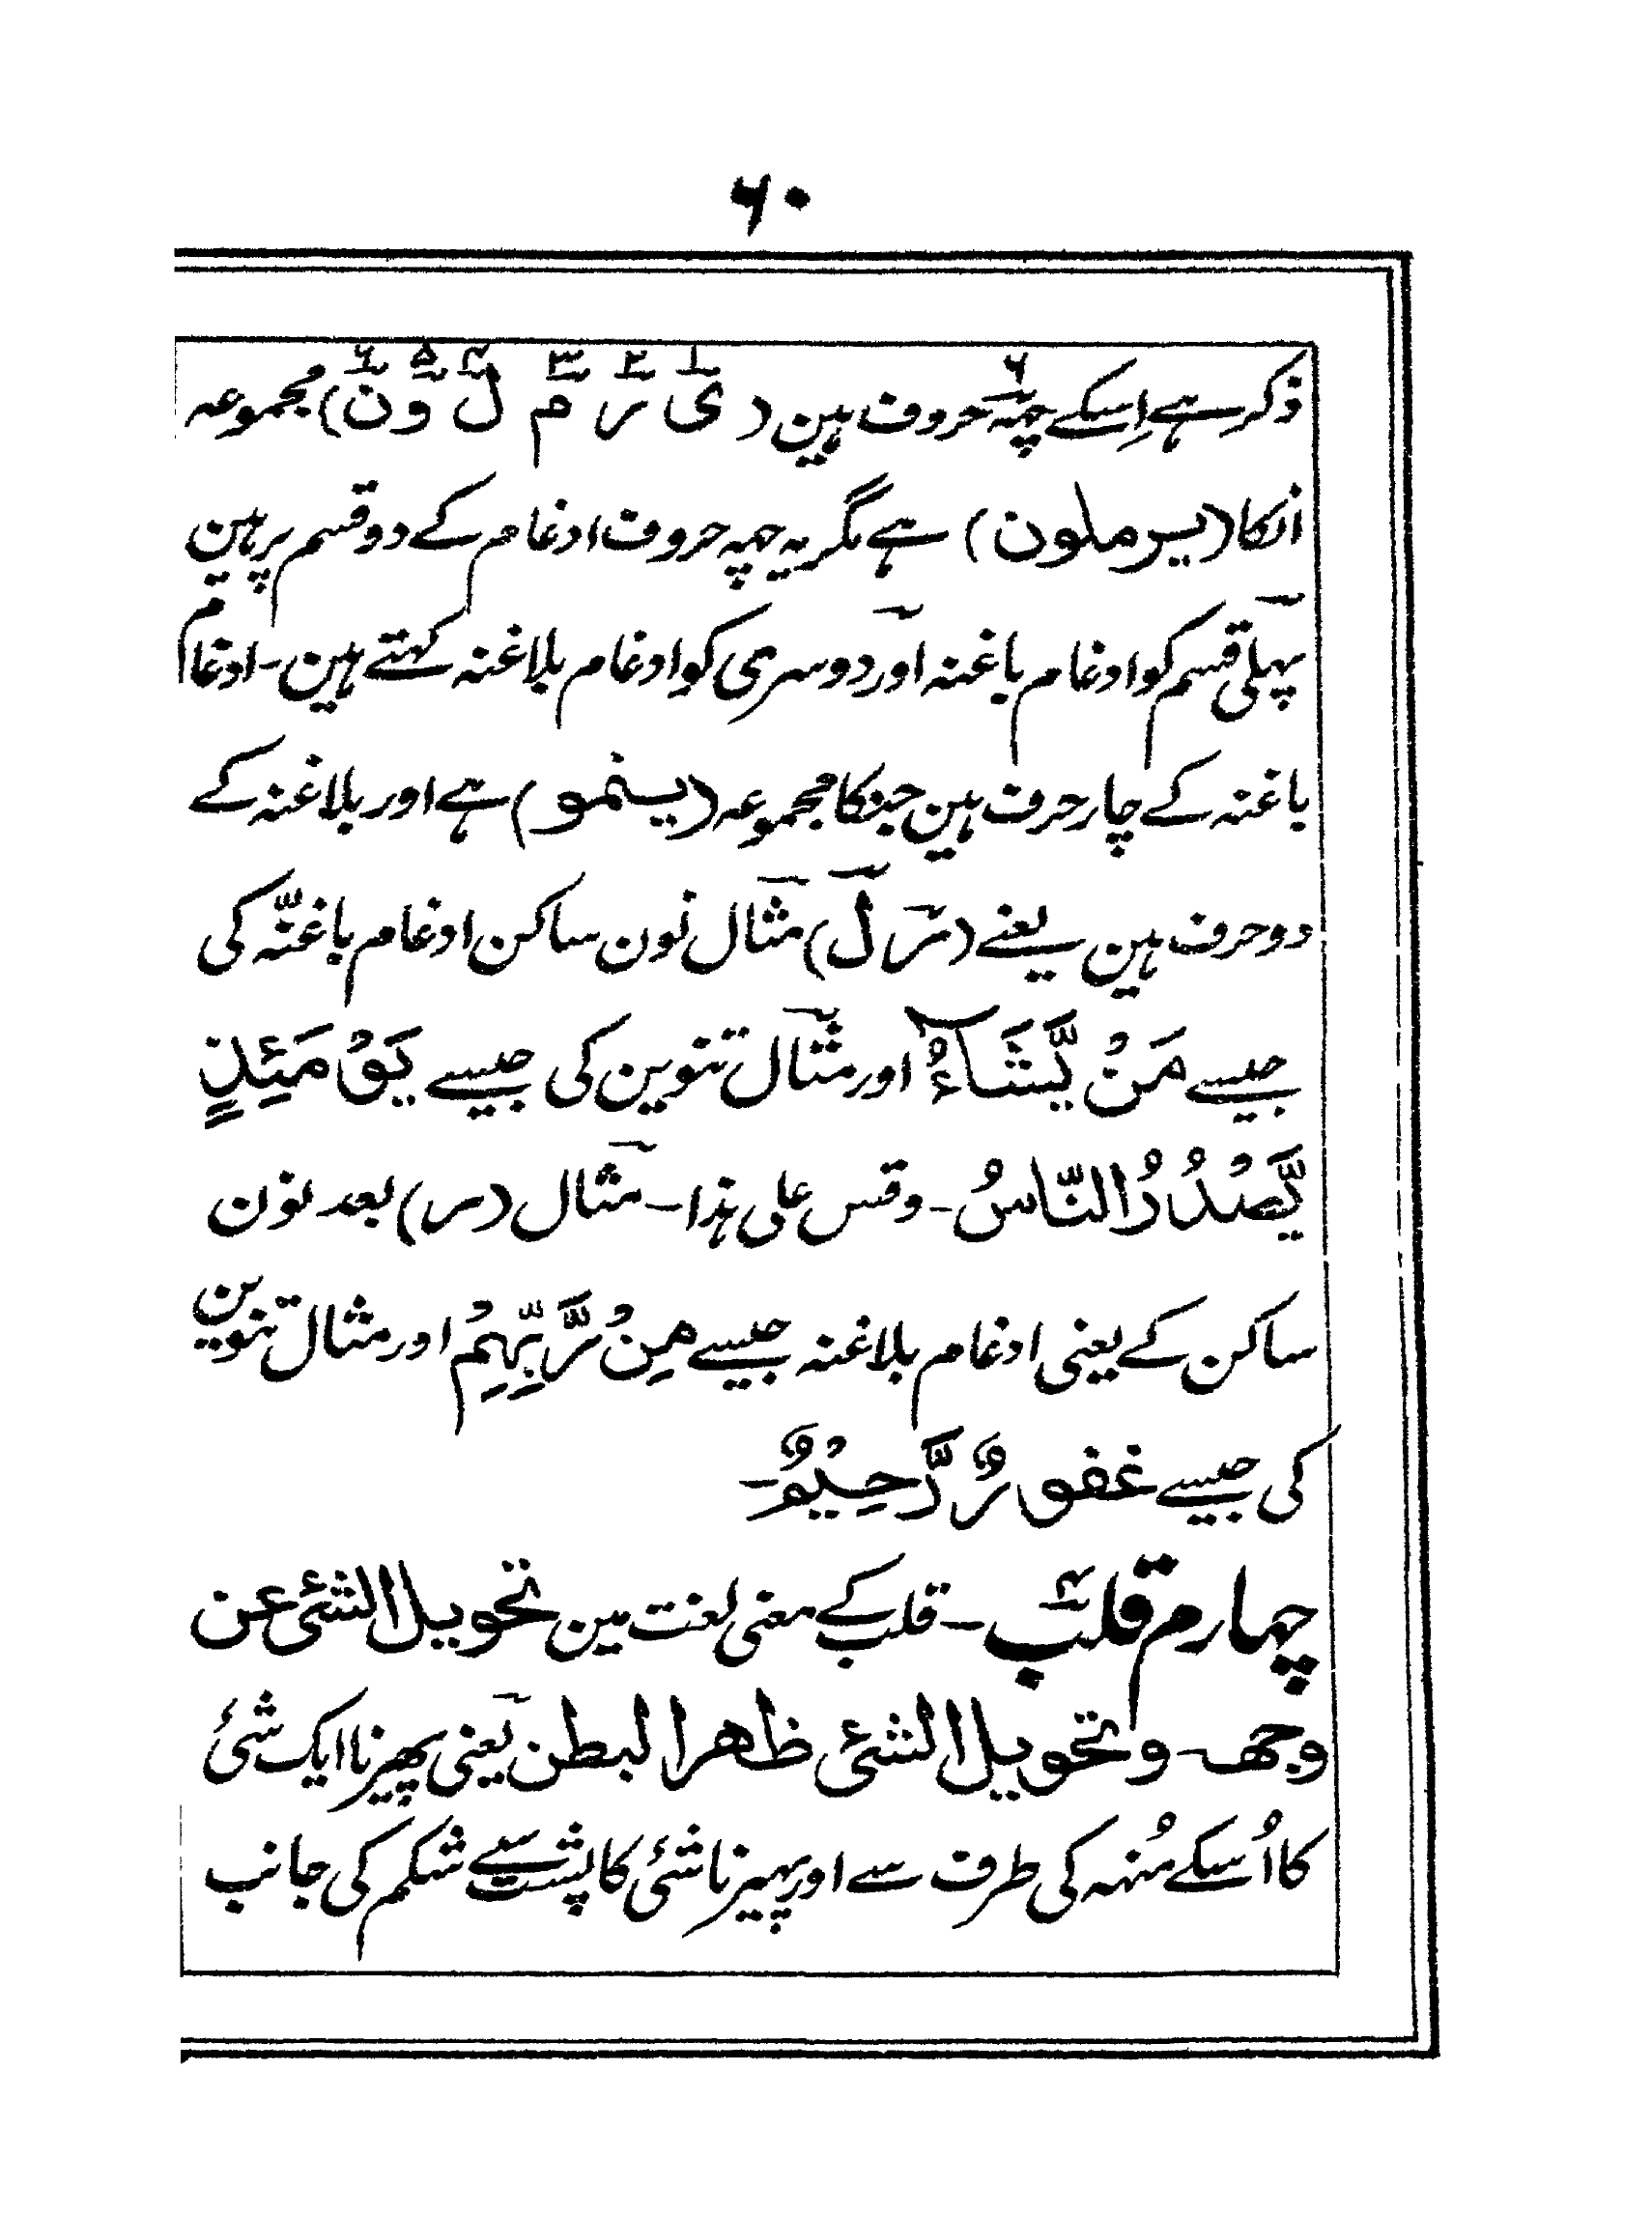 ۶۰
ذکر ہے اِسکے چھہ۶ حروف ہین (ی۱ ر۲ م۳ ل۴ و۵ ن۶) مجموعہ
انکا (یرملون) ہے مگر یہ چھہ حروف ادغام کے دو قسم پر ہین
پہلی قسم کو ادغام باغنہ اور دوسری کو ادغام بلاغنہ کہتے ہین۔ ادغام
باغنہ کے چار حرف ہین جنکا مجموعہ (ینمو) ہے اور بلاغنہ کے
دو حرف ہین یعنے (ر ل) مثال نون ساکن ادغام باغنّہ کی
جیسے مَنْ یَّشَآءُ اور مثال تنوین کی جیسے یَوْمَئِذٍ
یَّصْدُرُ النَّاسُ۔ وقس علی ہذا۔ مثال (ر) بعد نون
ساکن کے یعنی ادغام بلاغنہ جیسے مِنْ رَّبِّهِمْ اور مثال تنوین
کی جیسے غفورٌ رَّحِیْمٌ۔
چہارم۴ قلب۔ قلب کے معنی لغت مین تحویل الشئ عن
وجھہ۔ وتحویل الشئ ظاھرا لبطن یعنی پھیرنا ایک شئ
کا اُسکے مُنہہ کی طرف سے اور پہیرنا شئ کا پشت سے شکم کی جانب